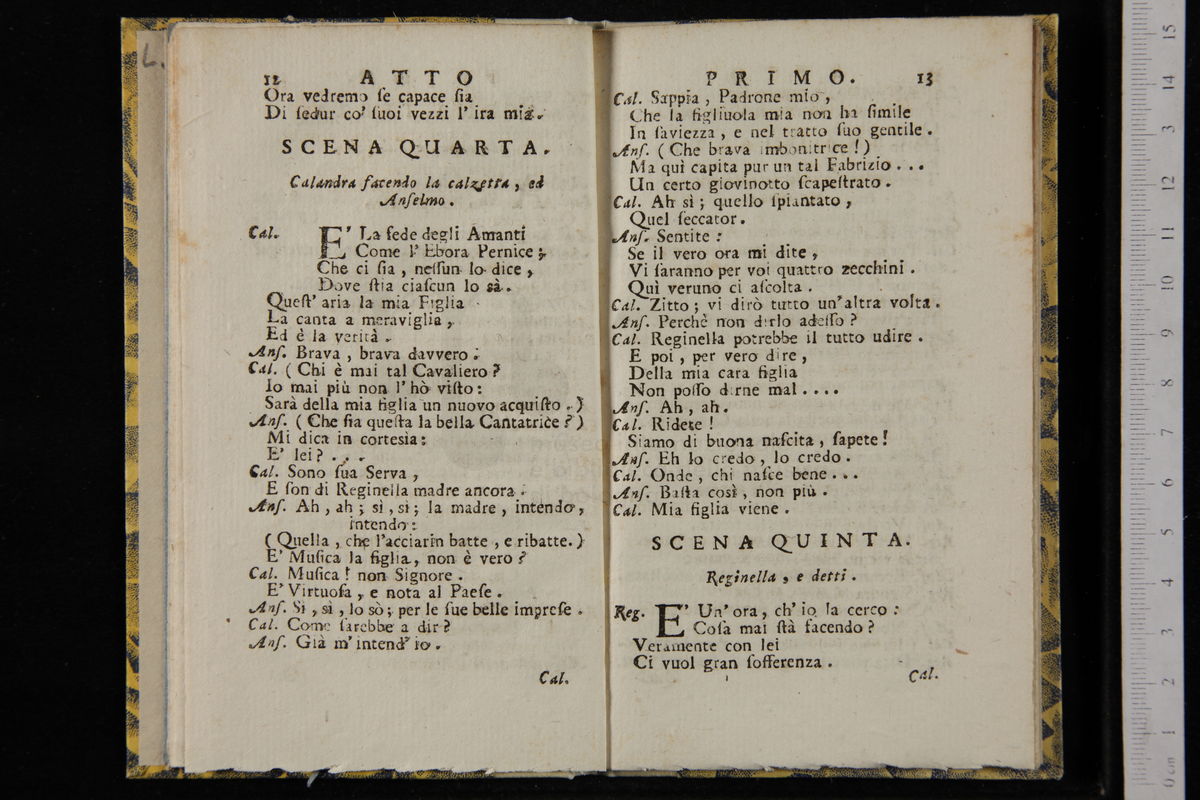 12 ATTO
Ora vedremo ſe capace ſia
Di ſedur co' ſuoi vezzi l' ira mia.
SCENA QUARTA.
Calandra facendo la calzetta, ed
Anſelmo.
Cal. E' La fede degli Amanti
Come l' Ebora Pernice;
Che ci ſia, neſſun lo dice,
Dove ſtia ciaſcun lo sà.
Queſt' aria la mia Figlia
La canta a meraviglia,
Ed è la verità.
Anſ. Brava, brava davvero:
Cal. (Chi è mai tal Cavaliero?
Io mai più non l' hò viſto:
Sarà della mia figlia un nuovo acquiſto.)
Anſ. (Che ſia queſta la bella Cantatrice?)
Mi dica in corteſia:
E' lei? ...
Cal. Sono ſua Serva,
E ſon di Reginella madre ancora.
Anſ. Ah, ah; sì, sì; la madre, intendo,
intendo:
(Quella, che l'acciarin batte, e ribatte.)
E' Muſica la figlia, non è vero?
Cal. Muſica! non Signore.
E' Virtuoſa, e nota al Paeſe.
Anſ. Sì, sì, lo sò; per le ſue belle impreſe.
Cal. Come ſarebbe a dir?
Anſ. Già m' intend' io.
Cal.
PRIMO. 13
Cal. Sappia, Padrone mio,
Che la figliuola mia non ha ſimile
In ſaviezza, e nel tratto ſuo gentile.
Anſ. (Che brava imbonitrice!)
Ma quì capita pur un tal Fabrizio...
Un certo giovinotto ſcapeſtrato.
Cal. Ah sì; quello ſpiantato,
Quel ſeccator.
Anſ. Sentite:
Se il vero ora mi dite,
Vi ſaranno per voi quattro zecchini.
Quì veruno ci aſcolta.
Cal. Zitto; vi dirò tutto un'altra volta.
Anſ. Perchè non dirlo adeſſo?
Cal. Reginella potrebbe il tutto udire.
E poi, per vero dire,
Della mia cara figlia
Non poſſo dirne mal....
Anſ. Ah, ah.
Cal. Ridete!
Siamo di buona naſcita, ſapete!
Anſ. Eh lo credo, lo credo.
Cal. Onde, chi naſce bene...
Anſ. Baſta così, non più.
Cal. Mia figlia viene.
SCENA QUINTA.
Reginella, e detti.
Reg. E' Un' ora, ch' io la cerco:
Coſa mai ſtà facendo?
Veramente con lei
Ci vuol gran ſofferenza.
Cal.